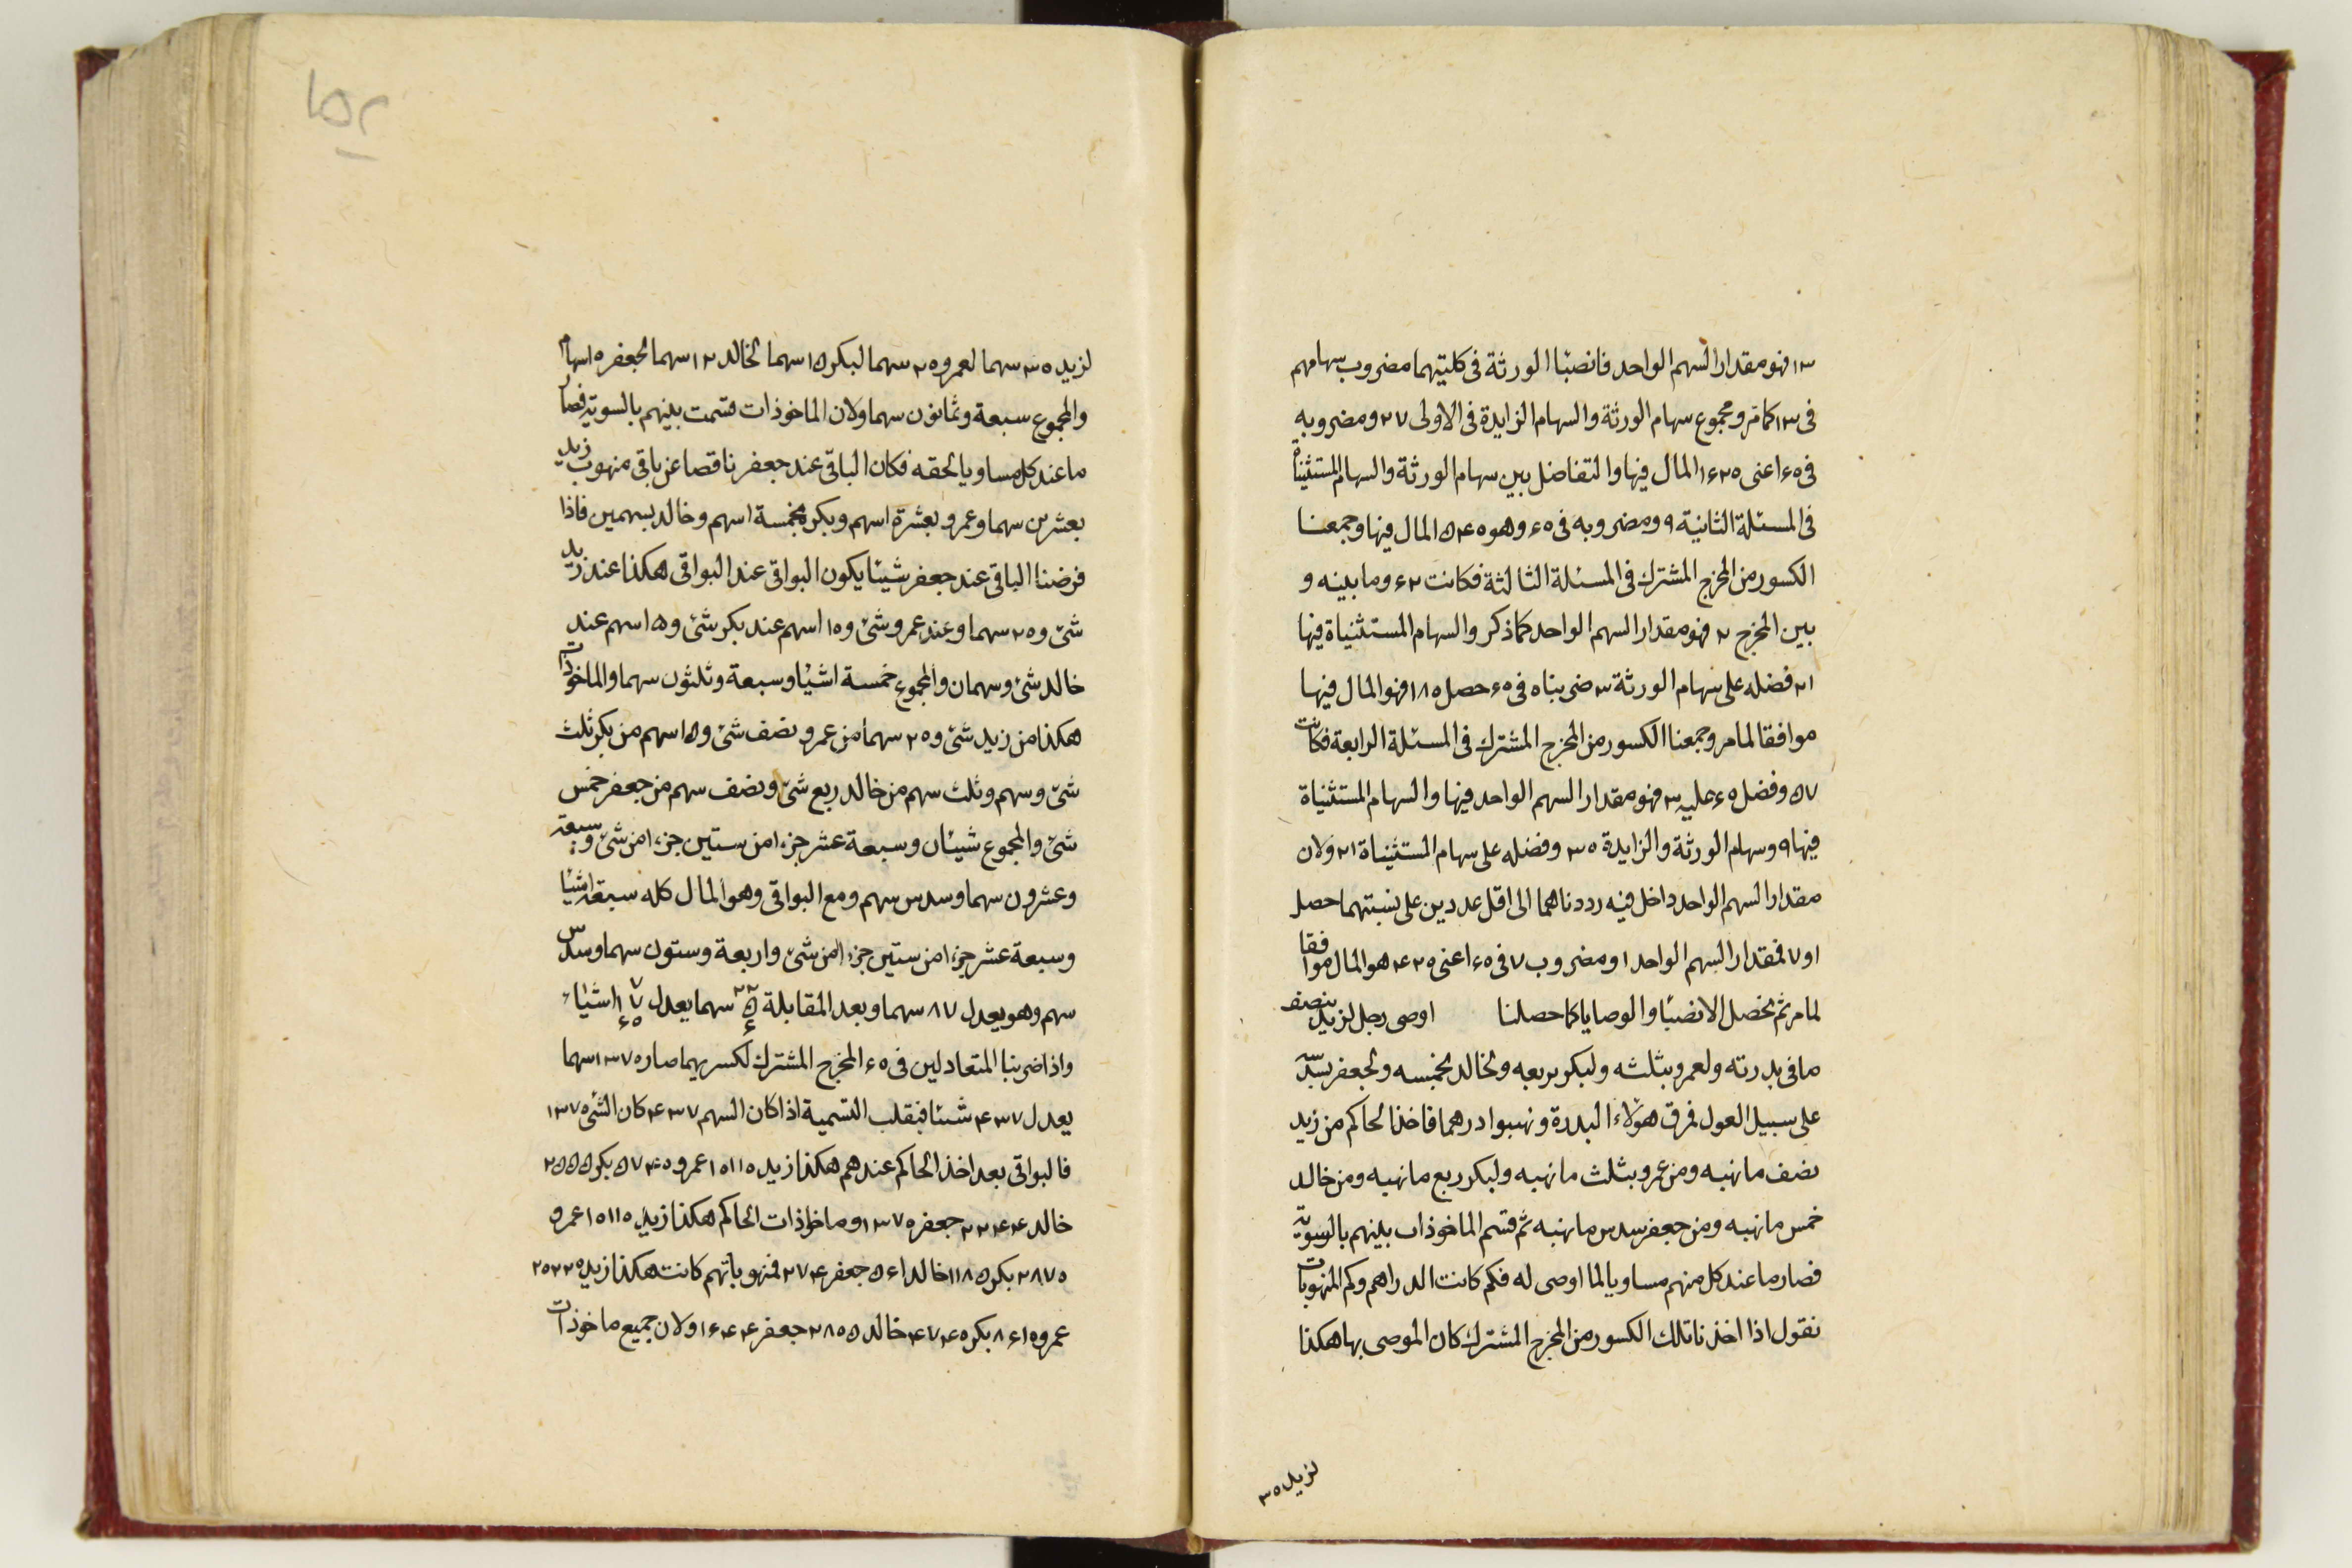 ۱۳ فهو مقدار السهم الواحد فانصبا الورثة فى كليتهما مضروب سهامهم
فى ۱۳ كما مر ومجموع سهام الورثة والسهام الزايدة فى الاولى ۲۷ ومضروبه
فى ۶۰ اعنى ۱۶۲۰ المال فيها والتفاضل بين سهام الورثة والسهام المستثناة
فى المسئلة الثانية ۹ ومضروبه فى ۶۰ وهو ۵۴۰ المال فيها وجمعنا
الكسور من المخرج المشترك فى المسئلة الثالثة فكانت ۶۲ وما بينه و
بين المخرج ۲ فهو مقدار السهم الواحد كما ذكر والسهام المستثنياة فيها
۲۱ فضله على سهام الورثة ۳ ضربناه فى ۶۰ حصل ۱۸۰ فهو المال فيها
موافقا لما مر وجمعنا الكسور من المخرج المشترك فى المسئلة الرابعة فكانت
۵۷ وفضل ۶۰ عليه ۳ فهو مقدار السهم الواحد فيها والسهام المستثنياة
فيها ۹ وسهام الورثة والزايدة ۳۰ وفضله على سهام المستثنياة ۲۱ ولان
مقدار السهم الواحد داخل فيه رددناهما الى اقل عددين على نسبتهما حصل
۱ و۷ فمقدار السهم الواحد ۱ ومضروب ۷ فى ۶۰ اعنى ۴۲۰ هو المال موافقا
لما مر ثم نحصل الانصبا والوصايا كما حصلنا اوصى رجل لزيد بنصف
ما فى بدرته ولعمرو بثلثه ولبكر بربعه ولخالد بخمسه ولجعفر بسدسه
على سبيل العول فمرق هؤلاء البدرة ونهبوا درهما فاخذ الحاكم من زيد
نصف ما نهبه ومن عمرو بثلث ما نهبه ولبكر ربع ما نهبه ومن خالد
خمس ما نهبه ومن جعفر سدس ما نهبه ثم قسم الماخوذات بينهم بالسوية
فصار ما عند كل منهم مساويا لما اوصى له فكم كانت الدراهم وكم المنهوبات
نقول اذا اخذنا تلك الكسور من المخرج المشترك كان الموصى بها هكذا
لزيد ۳۰
لزيد ۳۰ سهما لعمرو ۲۰ سهما لبكر ۱۵ سهما لخالد ۱۲ سهما لجعفر ۱۰ اسهام
والمجموع سبعة وثمانون سهما ولان الماخوذات قسمت بينهم بالسوية فصار
ما عند كل مساويا لحقه فكان الباقى عند جعفر ناقصا عن باقى منهوب زيد
بعشرين سهما وعمرو بعشرة اسهم وبكر بخمسة اسهم وخالد بسهمين فاذا
فرضنا الباقى عند جعفر شيئا يكون البواقى عند البواقى هكذا عند زيد
شئ و۲۰ سهما وعند عمرو شئ و۱۰ اسهم عند بكر شئ و۵ اسهم عند
خالد شئ وسهمان والمجموع خمسة اشيا وسبعة وثلثون سهما والماخوذات
هكذا من زيد شئ و۲۰ سهما من عمرو نصف شئ و۵ اسهم من بكر ثلث
شئ وسهم وثلث سهم من خالد ربع شئ ونصف سهم من جعفر خمس
شئ والمجموع شيئان وسبعة عشر جزءا من ستين جزءا من شئ وسبعة
وعشرون سهما وسدس سهم ومع البواقى وهو المال كله سبعة اشيا
وسبعة عشر جزءا من ستين جزءا من شئ واربعة وستون سهما وسدس
سهم وهو يعدل ۸۷ سهما وبعد المقابلة ۲۲ ۵/۶ سهما يعدل ۷ ۱۷/۶۰ اشياء
واذا ضربنا المتعادلين فى ۶۰ المخرج المشترك لكسريهما صار ۱۳۷۰ سهما
يعدل ۴۳۷ شئا فبقلب التسمية اذا كان السهم ۴۳۷ كان الشئ ۱۳۷۰
فالبواقى بعد اخذ الحاكم عندهم هكذا زيد ۱۰۱۱۰ عمرو ۵۷۴۰ بكر ۳۵۵۵
خالد ۲۲۴۴ جعفر ۱۳۷۰ وماخوذات الحاكم هكذا زيد ۱۰۱۱۰ عمرو
۲۸۷۰ بكر ۱۱۸۵ خالد ۵۶۱ جعفر ۲۷۴ فمنهوباتهم كانت هكذا زيد ۲۰۲۲۰
عمرو ۸۶۱۰ بكر ۴۷۴۰ خالد ۲۸۰۵ جعفر ۱۶۴۴ ولان جميع ماخوذات